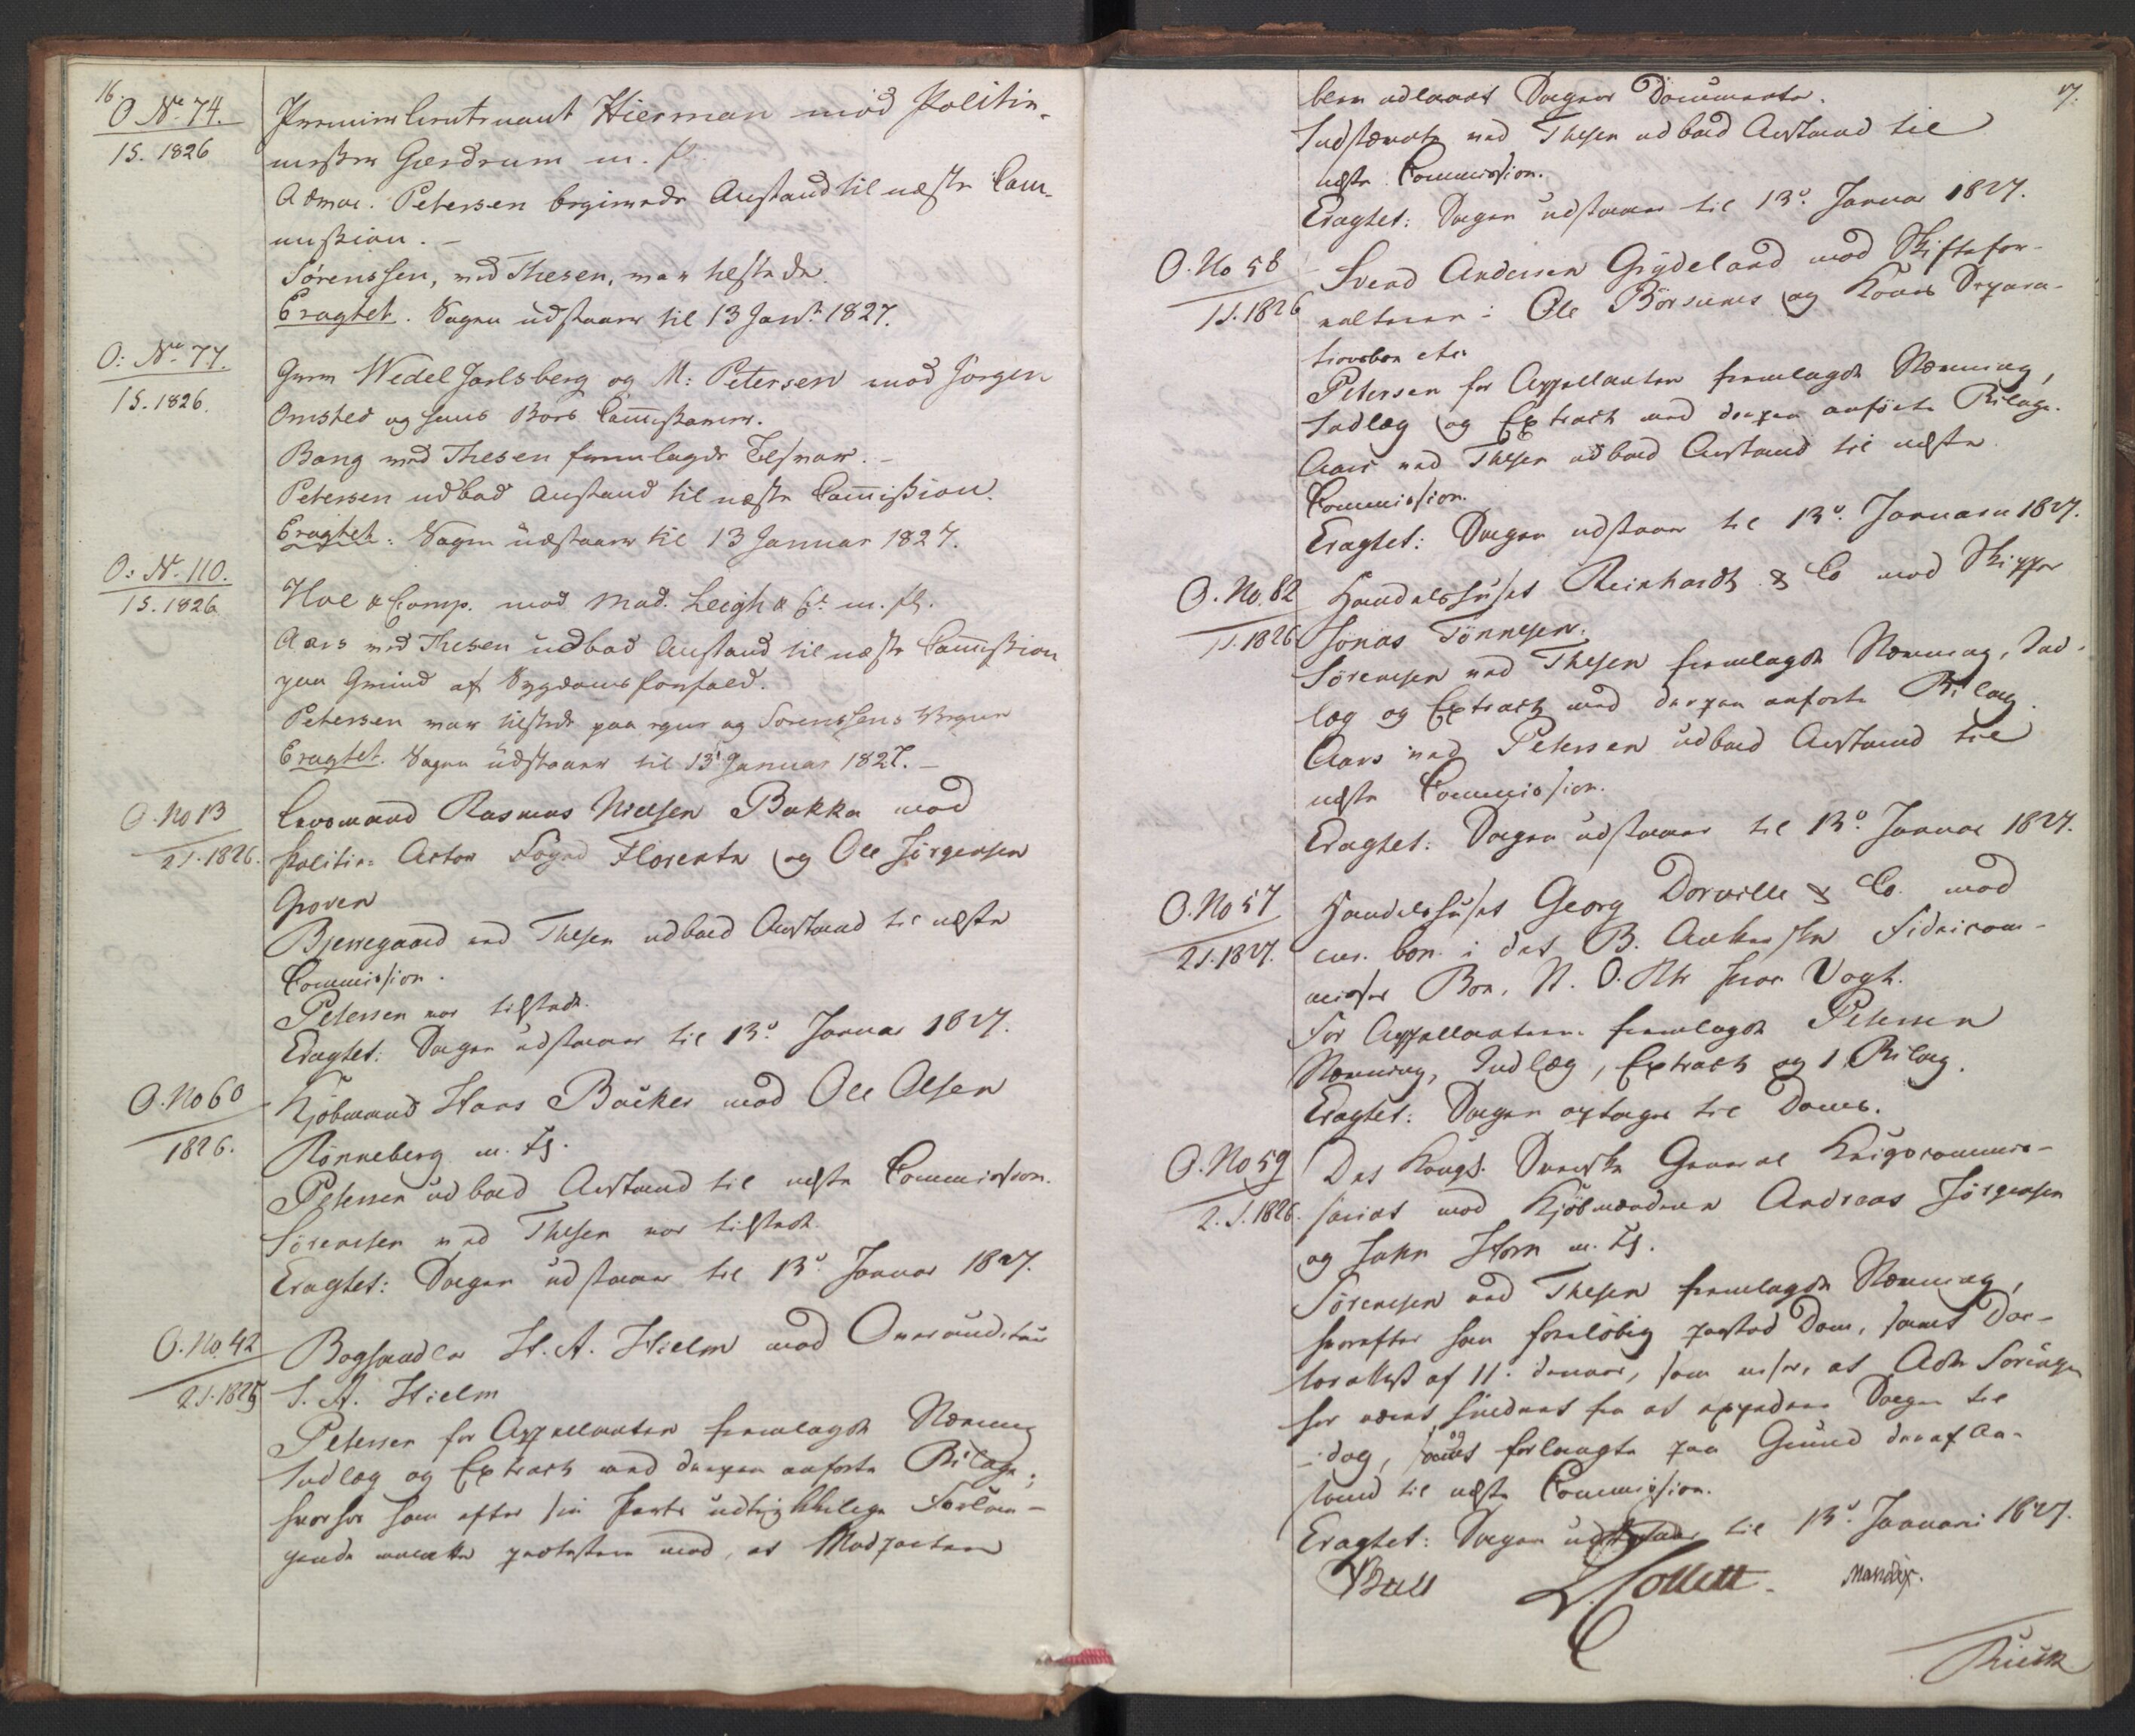 16.
O No 74.
1S. 1826
Premierlieutenant Hierman mod Politie-
mester Gierdrum m. fl.
Adour. Petersen begierede Anstand til næste Com-
mission. –
Sörenssen, ved Thesen, var tilstæde.
Eragtet. Sagen udstaaer til 13 Janr 1827.
O: No 77.
1S. 1826.
Grev Wedel Jarlsberg og M: Petersen mod Jørgen
Omsted og hans Boes Commissarier.
Bang ved Thesen fremlagde Tilsvar. –
Petersen udbad Anstand til næste Commission.
Eragtet: Sagen udstaaer til 13 Januar 1827.
O: No 110.
1S. 1826
Hoe & Comp. mod Mad. Leigh & Ct. m. fl.
Aars ved Thesen udbad Anstand til næste Commission
paa Grund af Sygdomsforfald.
Petersen var tilstede paa egne og Sörenssens Vegne
Eragtet. Sagen udstaaer til 13 Januar 1827. –
O. No 13
2S. 1826.
Lensmand Rasmus Nielsen Bakka mod
Politie- Actor Foged Florentz og Ole Jörgensen
Groven
Bjerregaard ved Thesen udbad Anstand til næste
Commission.
Petersen var tilstede.
Eragtet: Sagen udstaaer til 13de Januar 1827.
O. No 60
1826.
Kjöbmand Hans Backer mod Ole Olsen
Rönneberg m. Fl.
Petersen udbad Anstand til næste Commission.
Sörensen ved Thesen var tilstede.
Eragtet: Sagen udstaaer til 13de Januar 1827.
O. No. 42
2S. 1825
Boghandler H. A. Hielm mod Overauditeur
J. A. Hielm
Petersen for Appellanten fremlagde Stævning
Indlæg og Extract med derpaa anførte Bilage;
hvorhos han efter sin Parts udtrykkelige Forlan-
gende maatte protestere mod, at Modparten
17.
blev udlaant Sagens Documenter.
Indstævnte ved Thesen udbad Anstand til
næste Commission.
Eragtet: Sagen udstaaer til 13de Januar 1827.
O. No 58
1S. 1826
Svend Andersen Grydeland mod Skiftefor-
valteren i Ole Börsums og Kones Separa-
tionsboe etc.
Petersen for Appellanten fremlagde Stævning,
Indlæg og Extract med derpaa anførte Bilage.
Aars ved Thesen udbad Anstand til næste
Commission.
Eragtet: Sagen udstaaer til 13de Januarii 1827.
O. No. 82
1S. 1826
Handelshuset Reinhardt & Co mod Skipper
Jonas Tönnesen.
Sörensen ved Thesen fremlagde Stævning, Ind-
læg og Extract med derpaa anførte Bilag.
Aars ved Petersen udbad Anstand til
næste Commission.
Eragtet: Sagen udstaaer til 13de Januar 1827.
O. No 57
2S. 1827.
Handelshuset Georg Dorville & Co. mod
cur. bon. i det B. Ankerske Fideicom-
misses Boe, N. O. Rtr Prov Vogt.
For Appellanterne fremlagde Petersen
Stævning, Indlæg, Extract og 1 Bilag.
Eragtet: Sagen optages til Doms.
O. No 59
2. S. 1826.
Det Kongl. Danske General Krigscommis-
sariat mod Kjöbmændene Andreas Jörgensen
og John Horn m. Fl.
Sörensen ved Thesen fremlagde Stævning,
hvorefter han foreløbig paastod Dom, samt Doc-
torattest af 11. dennes, som viser, at Adv. Sörensen
har været hindret fra at expedere Sagen til
idag, og forlangte paa Grund deraf An-
stand til næste Commission.
Eragtet: Sagen udstaaer til 13de Januarii 1827.
Bull J. Collett. Mandix.